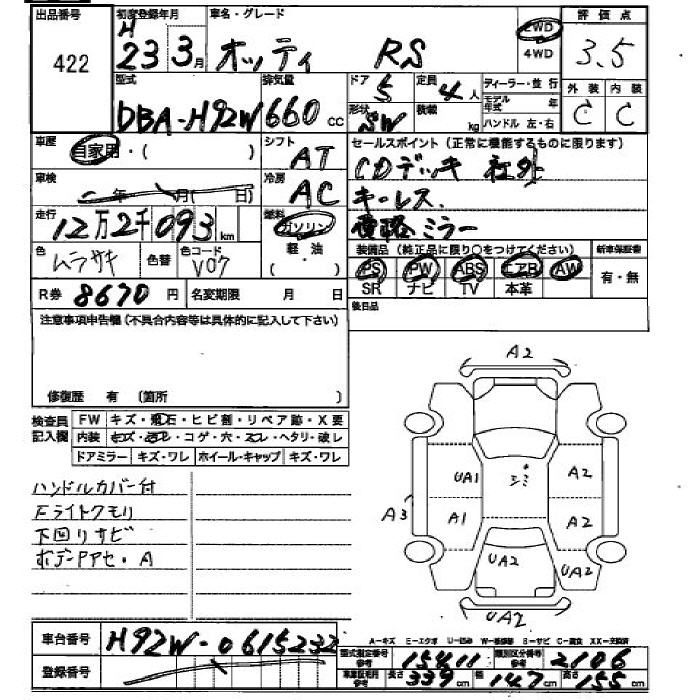 出品番号 初度登録年月 車名・グレード 評価点
422 H 23 3月 オッティ RS 2WD 4WD 3.5
型式 排気量 ドア 定員 ディーラー・並行 外装 内装
DBA-H92W 660 cc 5 4人 モデル年式 年 C C
形状 SW 積載 kg ハンドル 左・右
車歴 自家用・( ) シフト AT セールスポイント(正常に機能するものに限ります)
CDデッキ 社外
車検 年 月( 日) 冷房 AC キーレス
走行 12万2千093km 燃料 ガソリン 軽油 ミラー
色 ムラサキ 色替 色コード V07 ( ・ ) 装備品(純正品に限り○をつけてください) 新車保証書
PS PW ABS エアB AW 有・無
R券 8670円 名変期限 月 日 SR ナビ TV 本革
後日品
注意事項申告欄(不具合内容等は具体的に記入して下さい)
修復歴 有 (箇所 )
検査員記入欄 FW キズ・飛石・ヒビ割・リペア跡・X要
内装 キズ・ヨゴレ・コゲ・穴・スレ・ヘタリ・破レ
ドアミラー キズ・ワレ ホイール・キャップ キズ・ワレ
ハンドルカバー付
Fライトクモリ
下回リサビ
ボデーPPセ・A
A2
UA1 シミ A2
A3 A1 A2
UA2 UA2
UA2
車台番号 H92W-0615232
A-キズ E-エクボ U-凹み W-補修跡 S-サビ C-腐食 XX-交換済
登録番号 型式指定番号 参考 15411 類別区分番号 参考 2106
車庫証明用 参考 長さ 339cm 幅 147cm 高さ 155cm